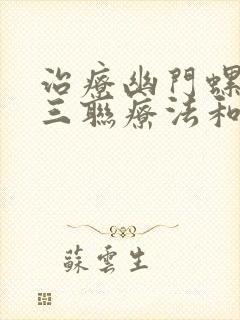 治療幽門螺
三聯療法和
蘇雲生